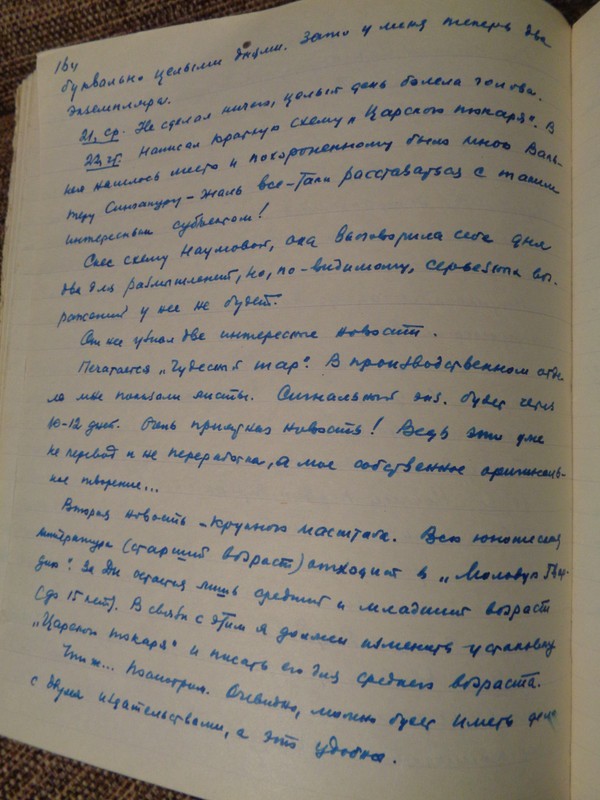 164
буквально целыми днями. Зато у меня теперь два
экземпляра.
21, ср. Не сделал ничего, целый день болела голова.
22, чт. Написал краткую схему „Царского токаря". В
ней нашлось место и похороненному было мною Валь-
теру Сингапуру – жаль все-таки расставаться с таким
интересным субъектом!
Снес схему Наумовой, она выговорила себе дня
два для размышлений, но, по-видимому, серьезных воз.
ражений у нее не будет.
От нее узнал две интересные новости.
Печатается „Чудесный шар". В производственном отде-
ле мне показали листы. Сигнальный экз. будет через
10-12 дней. Очень приятная новость! Ведь это уже
не перевод и не переработка, а мое собственное оригиналь-
ное творение...
Вторая новость – крупного масштаба. Всю юношескую
литературу (старший возраст) отходит в „Молодую Гвар-
дию". За Ди остается лишь средний и младший возраст
(до 15 лет). В связи с этим я должен изменить установку
„Царского токаря" и писать его для среднего возраста.
Что ж... Посмотрим. Очевидно, можно будет иметь дело
с двумя издательствами, а это удобно.